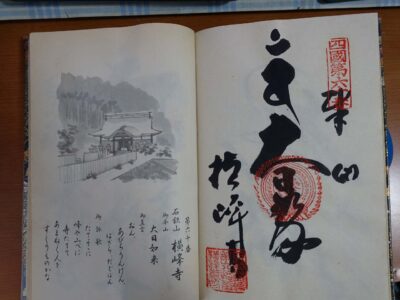 四國第六十番
奉納
大日如来
横峰寺
第六十番
石鈇山 横峰寺
御本尊 大日如来
御真言
おん
あびらうんけん
ばざらだどばん
御詠歌
たてよこに
峰や山べに
寺たてて
あまねく人を
すくうものかな